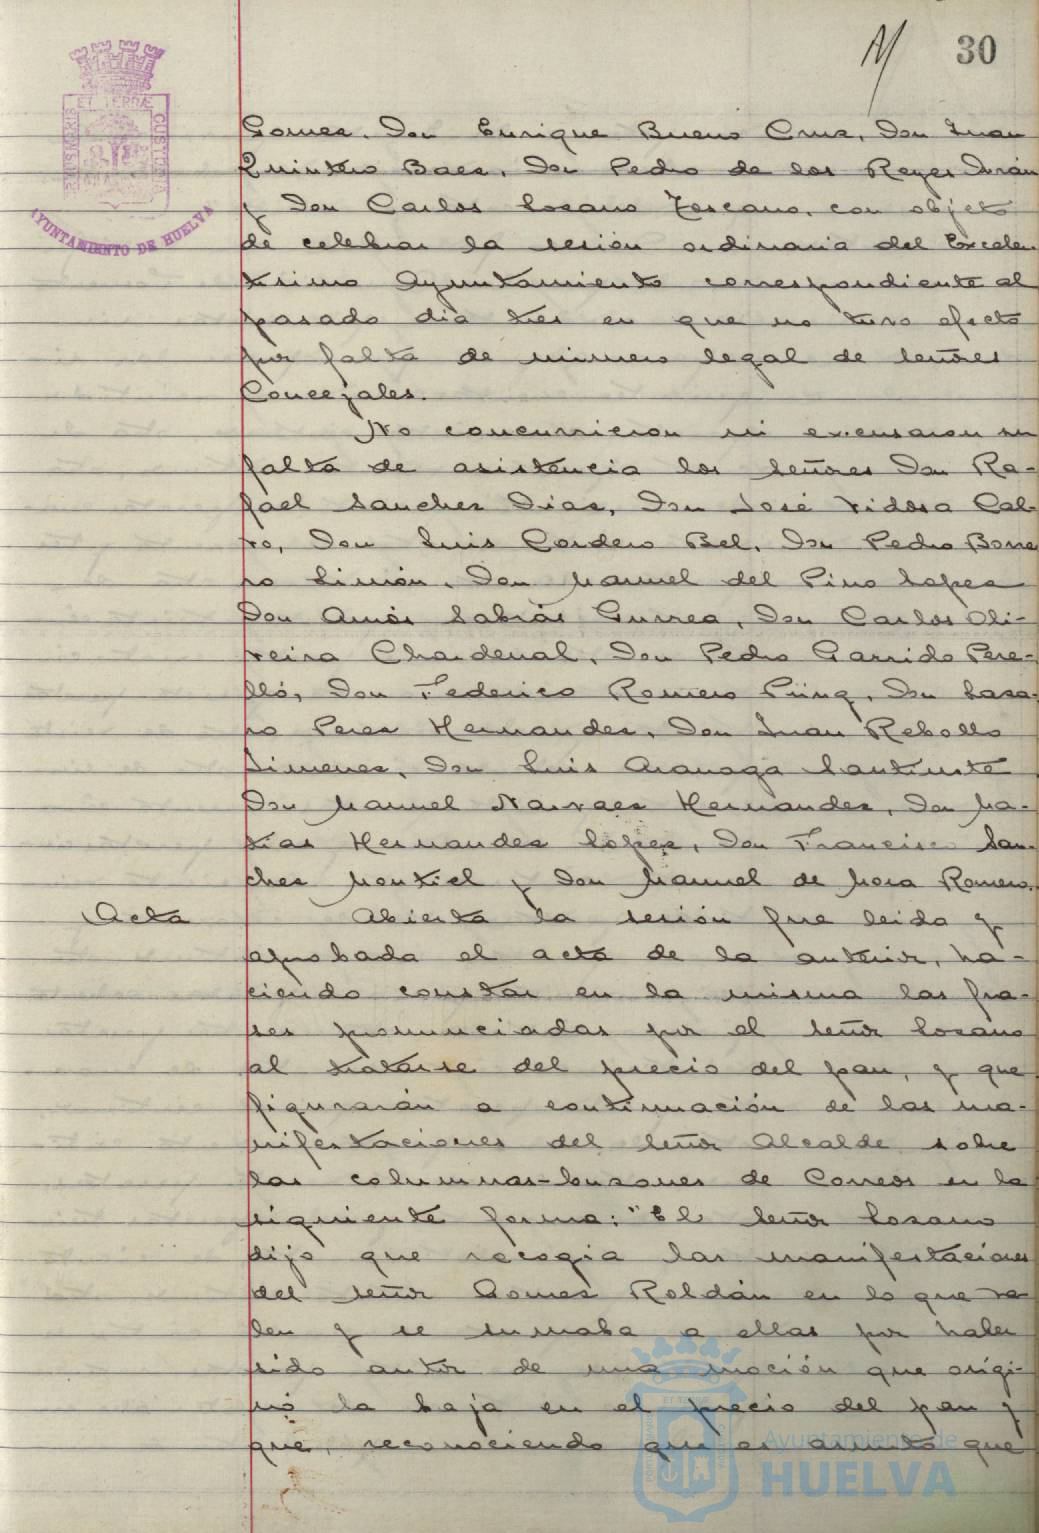 30
PORTUS MARIS
ET TERRÆ
CUSTODIA
AYUNTAMIENTO DE HUELVA
Gomez, Don Enrique Bueno Cruz, Don Juan
Quintero Baez, Don Pedro de los Reyes Durán
y Don Carlos Lozano Toscano, con objeto
de celebrar la sesión ordinaria del Excelen-
tisimo Ayuntamiento correspondiente al
pasado dia tres en que no tuvo efecto
por falta de número legal de señores
Concejales.
No concurrieron ni excusaron su
falta de asistencia los señores Don Ra-
fael Sanchez Diaz, Don José Vidosa Cal-
vo, Don Luis Cordero Bel, Don Pedro Borre
ro Limón, Don Manuel del Pino Lopez
Don Amós Sabrás Gurrea, Don Carlos Oli-
veira Chardenal, Don Pedro Garrido Pere-
lló, Don Federico Romero Püng, Don Lasa-
ro Perez Hernandez, Don Juan Rebollo
Jimenez, Don Luis Aranaga Santiuste
Don Manuel Narvaez Hernandez, Don Ma-
tias Hernandez Lopez, Don Francisco San-
chez Montiel y Don Manuel de Mora Romero.
Acta
Abierta la sesión fue leida y
aprobada el acta de la anterior, ha-
ciendo constar en la misma las fra-
ses pronunciadas por el señor Lozano
al tratarse del precio del pan, y que
figurarán a continuación de las ma-
nifestaciones del señor Alcalde sobre
las columnas-buzones de Correos en la
siguiente forma: "El señor Lozano
dijo que recogia las manifestaciones
del señor Gomez Roldán en lo que va-
len y se sumaba a ellas por haber
sido autor de una moción que origi-
nó la baja en el precio del pan y
que, reconociendo que es asunto que
Ayuntamiento de
HUELVA